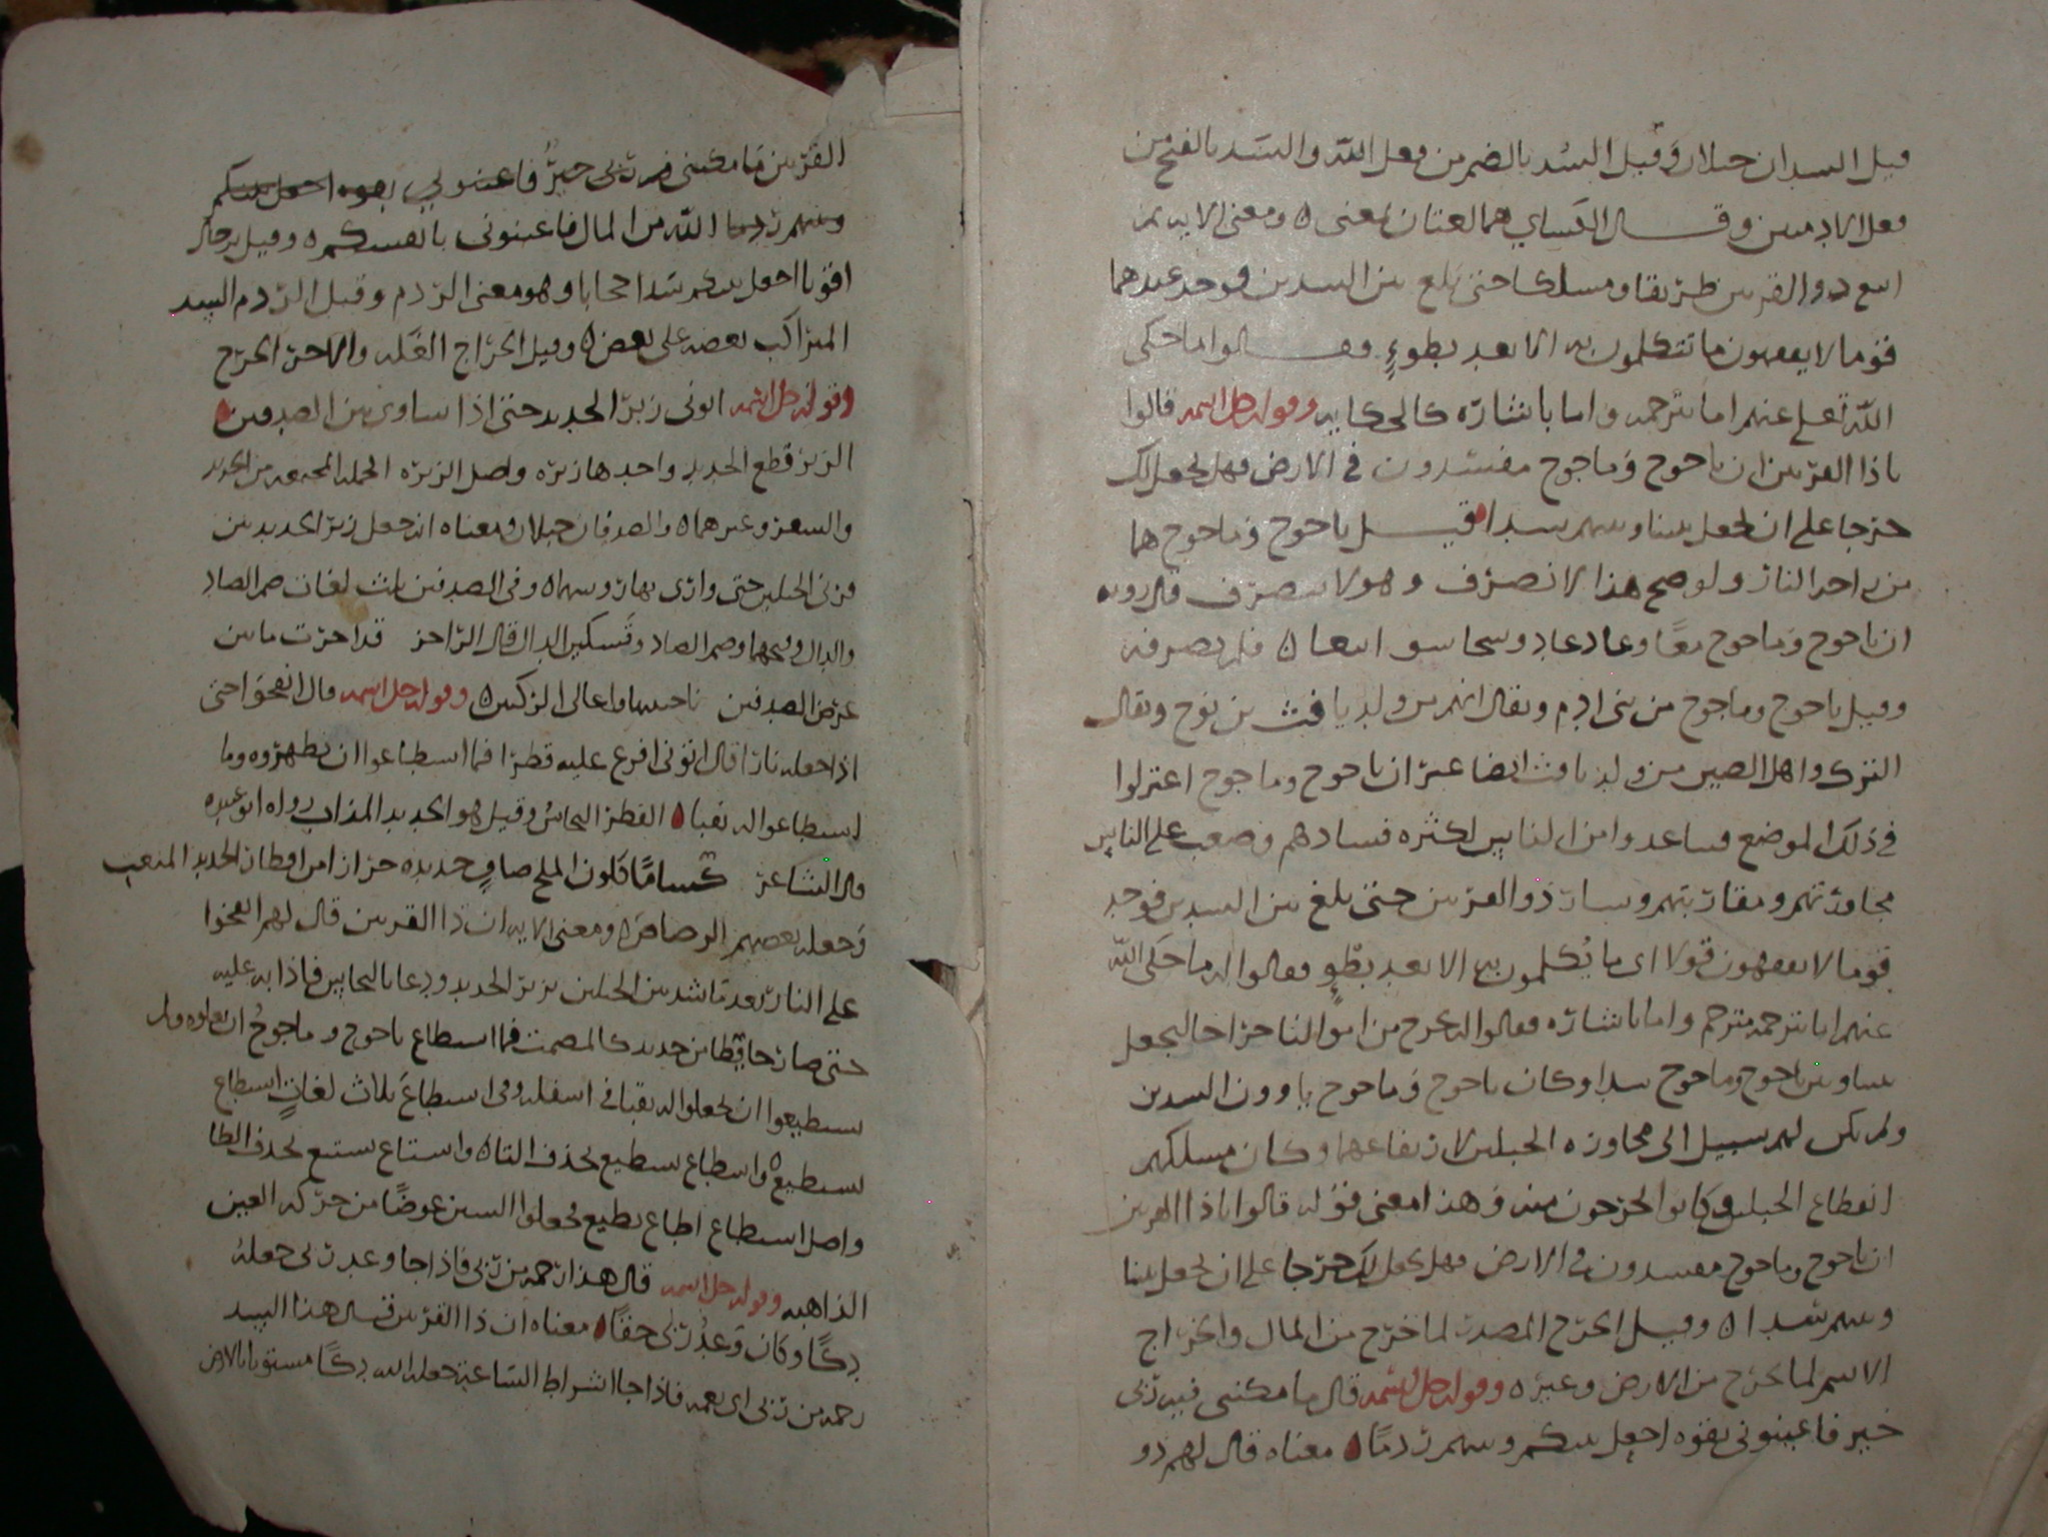 قيل السدان جبلان وقيل السُد بالضم من فعل الله والسَد بالفتح من
فعل الادميين وقال الكساي هما لغتان بمعنى ه ومعنى الايه ثم
اتبع ذو القرنين طريقا ومسلكا حتى بلغ بين السدين فوجد عندهما
قوما لا يفقهون ما تتكلمون به الا بعد بطوءٍ فقالوا ما حكى
الله تعلى عنهم اما بترجمه واما باشاره كالحكايه وقوله جل اسمه قالوا
ياذا القرنين ان ياجوج وماجوج مفسدون في الارض فهل نجعل لك
خرجا على ان تجعل بيننا وبينهم سدا ه قيل ياجوج وماجوج هما
من اجج النار ولو صح هذا لانصرف وهو لا ينصرف قال روبه
ان ياجوج وماجوج معًا وعاد عاد واستجاشوا تبعا ه فلم يصرفه
وقيل ياجوج وماجوج من بني ادم ويقال انهم من ولد يافث بن نوح ويقال
الترك واهل الصين من ولد يافث ايضا غير ان ياجوج وماجوج اعتزلوا
في ذلك الموضع فتباعدوا من الناس لكثره فسادهم وصعب على الناس
مجاورتهم ومقاربتهم وسار ذو القرنين حتى بلغ بين السدين فوجد
قوما لا يفقهون قولا اى ما يُكلمون به الا بعد بطوٍء فقالوا له ما حكى الله
عنهم اما بترجمه مترجم واما باشاره فقالوا له نخرج من اموالنا خراجا لتجعل
بيننا وبين ياجوج وماجوج سدا وكان ياجوج وماجوج ياوون السدين
ولم يكن لهم سبيل الى مجاوزه الجبلين لارتفاعهما وكان مسلكهم
انقطاع الجبلين كانوا يخرجون منه وهذا معنى قوله قالوا ياذا القرنين
ان ياجوج وماجوج مفسدون في الارض فهل نجعل لك خرجا على ان تجعل بيننا
وبينهم سدا ه وقيل الخرج المصدر لما خرج من المال والخراج
الاسم لما يخرج من الارض وغيره وقوله جل اسمه قال ما مكنني فيه ربى
خير فاعينونى بقوه اجعل بينكم وبينهم ردمًا ه معناه قال لهم ذو
القرنين ما مكننى فيه ربى خيرٌ فاعينوني بقوه اجعل بينكم
وبينهم ردما الله من المال فاعينونى بانفسكم ه وقيل برجال
اقويا اجعل بينكم سَدا حجابا وهو معنى الردم وقيل الردم السد
المتراكب بعضه على بعض ه وقيل الخراج الغَله والاخر الخرج
وقوله جل اسمه اتونى زبر الحديد حتى اذا ساوى بين الصدفين ه
الزبر قطع الحديد واحدها زبره واصل الزبره الجمله المجتمعه من الحديد
والشعر وغيرهما ه والصدفان جبلان ومعناه انه جعل زبر الحديد بين
هذين الجبلين حتى وازى بها روسهما ه وفى الصدفين ثلث لغات ضم الصاد
والدال وفتحهما وضم الصاد وتَسكين الدال قال الراجز قد اخذت ما بين
عرض الصدفين ناحيتيها واعالى الركنين ه وقوله جل اسمه قال انفخوا حتى
اذا جعله نارًا قال اتونى افرغ عليه قطرًا فما اسطاعوا ان يظهروه وما
استطاعوا له نقبا ه القطر النحاسُ وقيل هو الحديد المذاب رواه ابو عبيده
قال الشاعر حُسامًا كلون الملح صافٍ حديده جراز امن اقطار الحديد المنعت
وَجعله بعضهم الرصاص ه ومعنى الايه ان ذا القرنين قال لهم انفخوا
على النار بعد ما سُد بين الجبلين بزبر الحديد ودعا بالنحاس فاذابه عليه
حتى صار حايطا من حديد كالمصمت فما اسطاع ياجوج وماجوجُ ان يعلوه ولم
يستطيعوا ان يجعلوا له نقبا في اسفله وفى اسطاعَ ثلاث لغاتٍ استطاع
يستطيع ه واسطاع يسطيع بحذف التا ه واستاع يستيع بحذف الطا
واصل اسطاع اطاع يطيع فجعلوا السين عوضًا من حركه العين
الذاهبه وقوله جل اسمه قال هذا رحمه من ربى فاذا جا وعد ربى جعلهُ
دكًا وكان وَعدُ ربى حقًا ه معناه ان ذا القرنين قال هذا السد
رحمه من ربى اى نعمه فاذا جا اشراط الساعه جعله الله دكًا مستويا بالارض